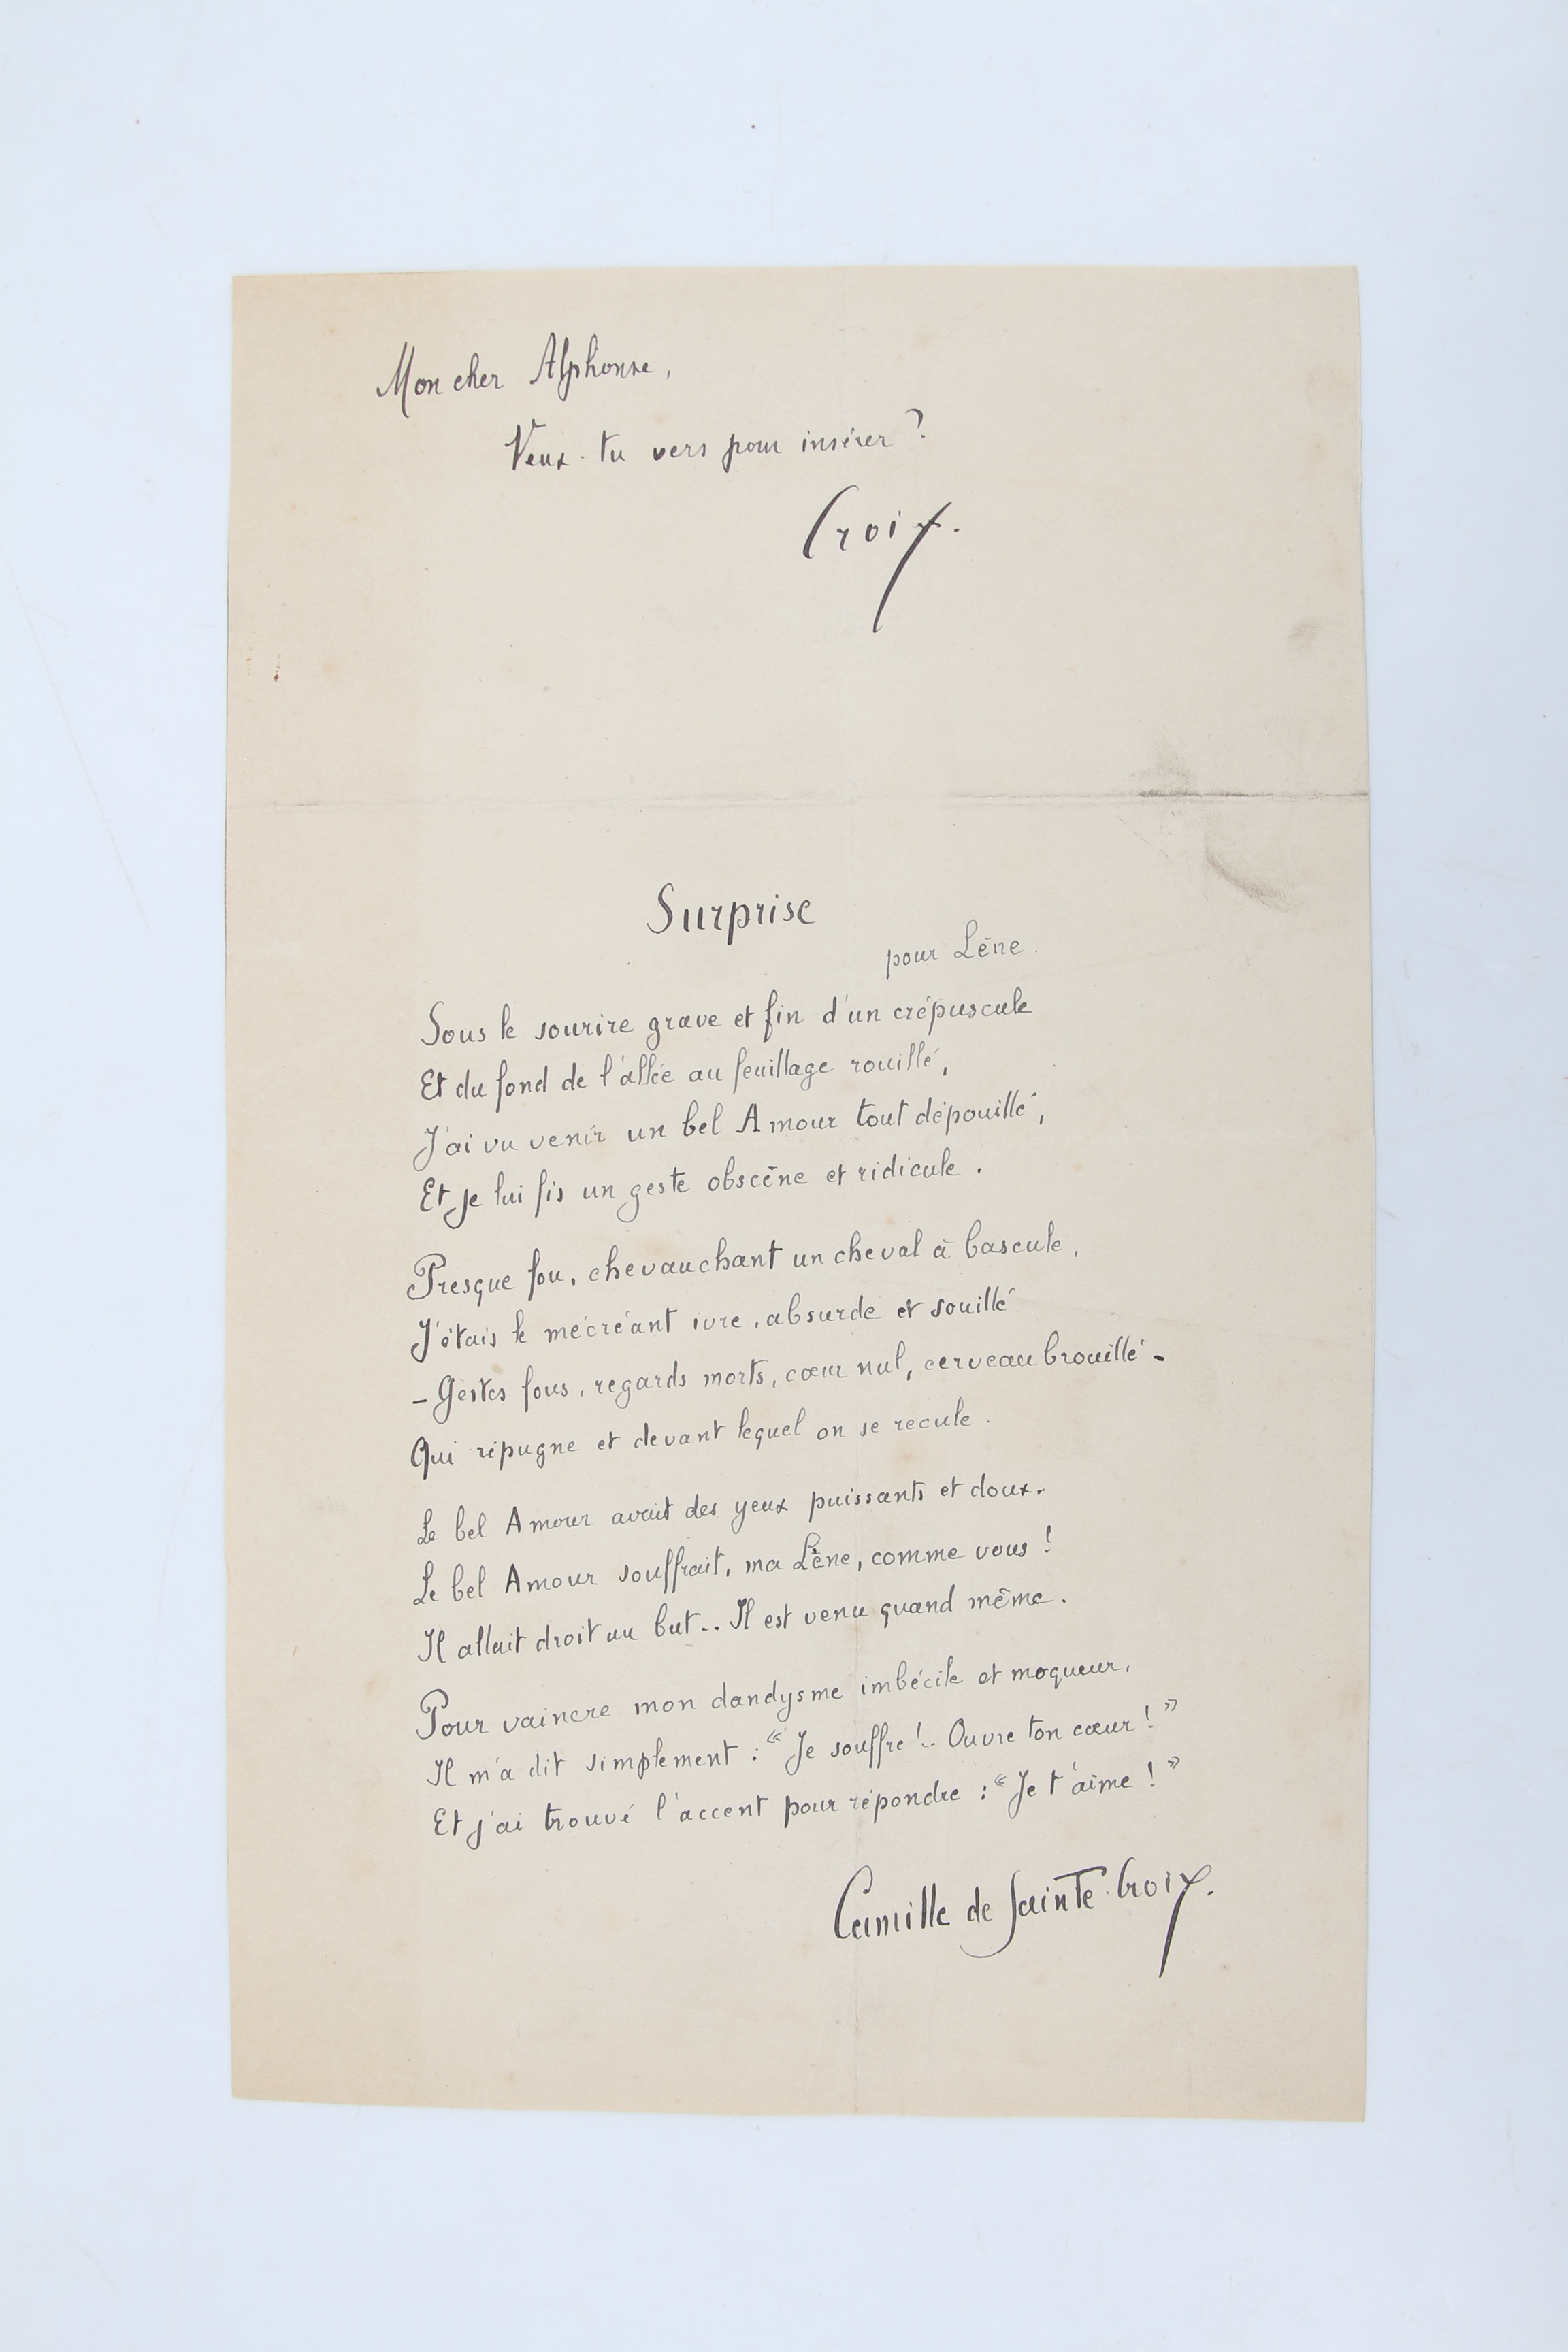 Mon cher Alphonse,
Veux-tu vers pour insérer ?
Croix.
Surprise
pour Lène.
Sous le sourire grave et fin d'un crépuscule
Et du fond de l'allée au feuillage rouillé,
J'ai vu venir un bel Amour tout dépouillé,
Et je lui fis un geste obscène et ridicule.
Presque fou, chevauchant un cheval à bascule,
J'étais le mécréant ivre, absurde et souillé
– Gestes fous, regards morts, cœur nul, cerveau brouillé –
Qui répugne et devant lequel on se recule.
Le bel Amour avait des yeux puissants et doux.
Le bel Amour souffrait, ma Lène, comme vous !
Il allait droit au but.. Il est venu quand même.
Pour vaincre mon dandysme imbécile et moqueur,
Il m'a dit simplement : « Je souffre !.. Ouvre ton cœur ! »
Et j'ai trouvé l'accent pour répondre : « Je t'aime ! »
Camille de Sainte-Croix.